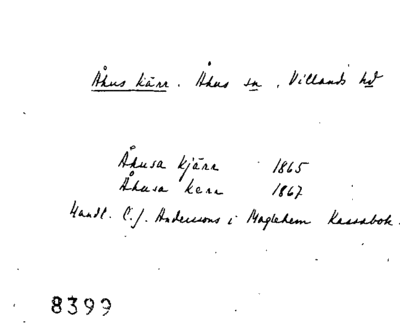 Åhus kärr. Åhus sn, Villands hd
Åhusa kjärr 1865
Åhusa kärr 1867
Handl. C. J. Anderssons i Maglehem Kassabok.
8399